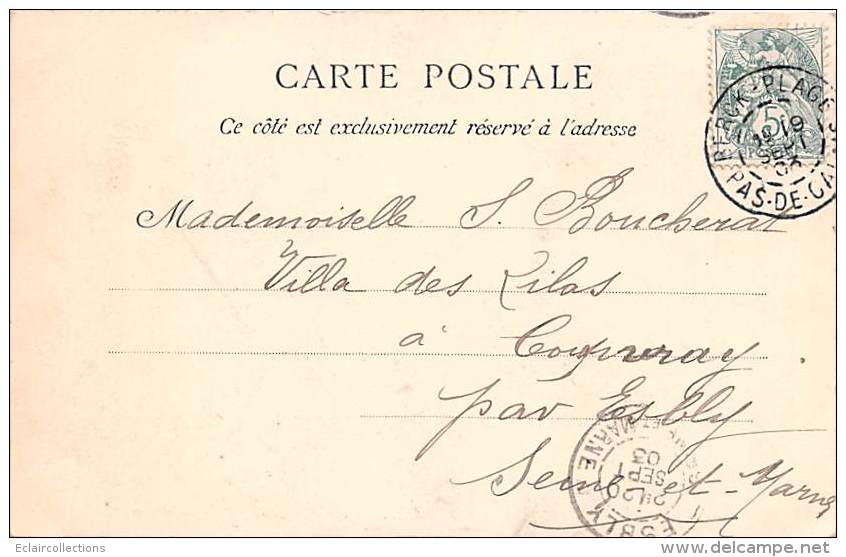 CARTE POSTALE
Ce côté est exclusivement réservé à l'adresse
BERCK-PLAGE
19
SEPT
03
PAS-DE-CALAIS
5
Mademoiselle S. Boucherat
Villa des Lilas
à Coupvray
par Esbly
Seine-et-Marne
ET-MARNE
ESBLY
20
SEPT
03
Eclaircollections
www.delcampe.net